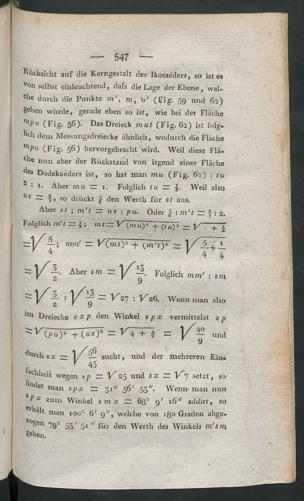 — 547 —
Rücksicht auf die Kerngestalt des Ikosaëders, so ist es
von selbst einleuchtend, daſs die Lage der Ebene, wel-
che durch die Punkte m', m, 'o' (Fig. 59 und 62)
gehen würde, gerade eben so ist, wie bei der Fläche
mpo (Fig. 56). Das Dreieck mut (Fig. 62) ist folg-
lich dem Messungsdreiecke ähnlich, wodurch die Fläche
mpo (Fig. 56) hervorgebracht wird. Weil diese Flä-
che nun aber der Rückstand von irgend einer Fläche
des Dodekaëders ist, so hat man mu (Fig. 62) : tu
2 : 1. Aber mu = 1. Folglich tu = ½. Weil also
us = ⅔, so drückt ⅙ den Werth für st aus.
Aber st : m't = us : pu. Oder : m't = : 2.
Folglich m't = ½; mt = √(mu)² + (tu)² = √1 + ¼
= √5/4; mm' = √(mt)² + (m't)² = √5/4 + 1/4
= √3/2. Aber sm = √13/9. Folglich mm' : sm
= √3/2 : √13/9 = √27 : √26. Wenn man also
im Dreiecke sxp den Winkel spx vermittelst sp
= √(pu)² + (us)² = √4 + 4/9 = √40/9 und
durch sx = √56/45 sucht, und der mehreren Ein-
fachheit wegen sp = √25 und sx = √7 setzt, so
findet man spx = 31° 56' 53''. Wenn man nun
spx zum Winkel smx = 68° 9' 16'' addirt, so
erhält man 100° 6' 9'', welche von 180 Graden abge-
zogen 79° 53' 51'' für den Werth des Winkels m'sm
geben.